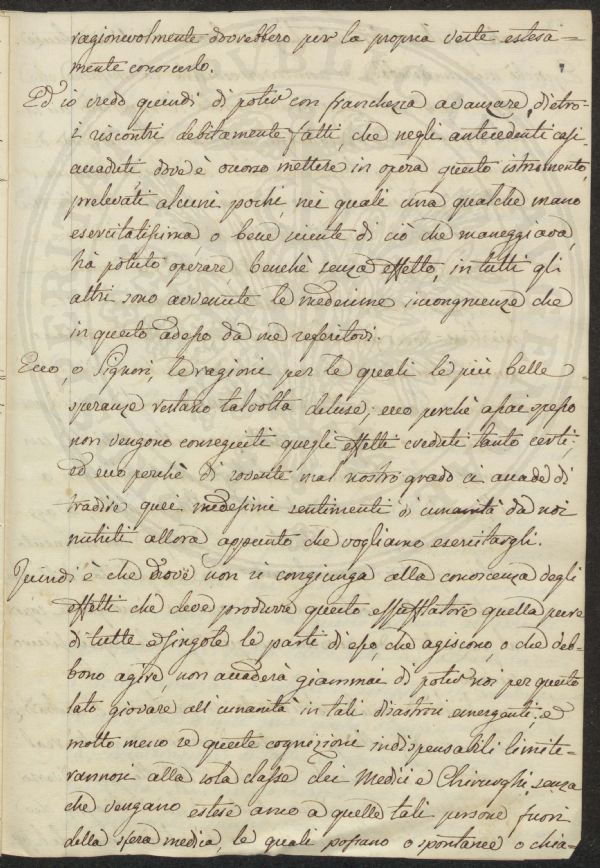 ragionevolmente dovrebbero per la propria veste estesa=
mente conoscerlo.
Ed io credo quindi di poter con franchezza avanzare, dietro
i riscontri debitamente fatti, che negli antecedenti casi
accaduti, dove è occorso mettere in opera questo istrumento,
prelevati alcuni pochi, nei quali una qualche mano
esercitatissima, o bene sciente di ciò che maneggiava,
hà potuto operare, benchè senza effetto, in tutti gli
altri sono avvenute le medesime incongruenze che
in questo adesso da me referitovi.
Ecco, o Signori, le ragioni per le quali le più belle
speranze restano talvolta deluse; ecco perchè assai spesso
non vengono conseguiti quegli effetti creduti tanto certi;
ed ecco perchè di sovente mal nostro grado ci accade di
tradire quei medesimi sentimenti di umanità da noi
nutriti allora appunto che vogliamo esercitargli.
Quindi è che dove non si congiunga alla conoscenza degli
effetti che deve produrre questo essufflatore quella pure
di tutte e singole le parti d'esso, che agiscono, o che deb=
bono agire, non accaderà giammai di poter noi per questo
lato giovare all'umanità in tali disastrosi emergenti; e
molto meno se queste cognizioni indispensabili limite=
rannosi alla sola classe dei Medici e Chirurghi, senza
che vengano estese anco a quelle tali persone fuori
della sfera medica, le quali possano o spontanee o chia=